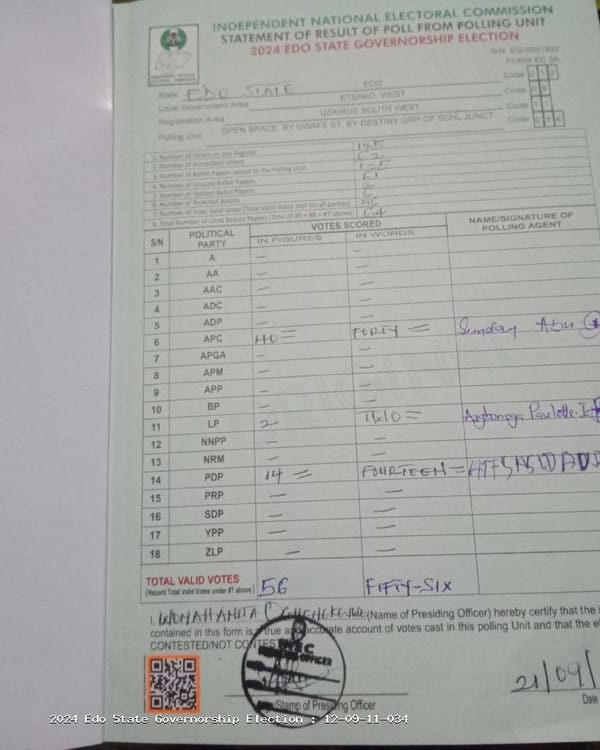 INDEPENDENT NATIONAL ELECTORAL COMMISSION
STATEMENT OF RESULT OF POLL FROM POLLING UNIT
2024 EDO STATE GOVERNORSHIP ELECTION
FORM EC 8A
State EDO STATE EDO Code
Local Government Area ETSAKO WEST Code
Registration Area UZAIRUE SOUTH WEST Code
Polling Unit OPEN SPACE. BY UWAFE ST. BY DESTINY GRP OF SCHL JUNCT Code
1. Number of Voters on the Register 125
2. Number of Accredited Voters
3. Number of Ballot Papers Issued to the Polling Unit 125
4. Number of Unused Ballot Papers 61
5. Number of Spoiled Ballot Papers
6. Number of Rejected Ballots
7. Number of Total Valid Votes (Total Valid Votes cast for all parties) 56
8. Total Number of Used Ballot Papers (Total of #5 + #6 + #7 above) 64
S/N POLITICAL PARTY VOTES SCORED NAME/SIGNATURE OF POLLING AGENT
IN FIGURES IN WORDS
1 A — —
2 AA — —
3 AAC — —
4 ADC — —
5 ADP — —
6 APC 40 = FORTY = Sunday Abu
7 APGA — —
8 APM — —
9 APP — —
10 BP — —
11 LP 2 TWO =
12 NNPP — —
13 NRM — —
14 PDP 14 = FOURTEEN =
15 PRP — —
16 SDP — —
17 YPP — —
18 ZLP — —
TOTAL VALID VOTES 56 FIFTY-SIX
(Record Total Valid Votes under #7 above)
I, (Name of Presiding Officer) hereby certify that the
contained in this form is a true and accurate account of votes cast in this polling Unit and that the
CONTESTED/NOT CONTES
INEC
21/09/
/Stamp of Presiding Officer Date
2024 Edo State Governorship Election : 12-09-11-034